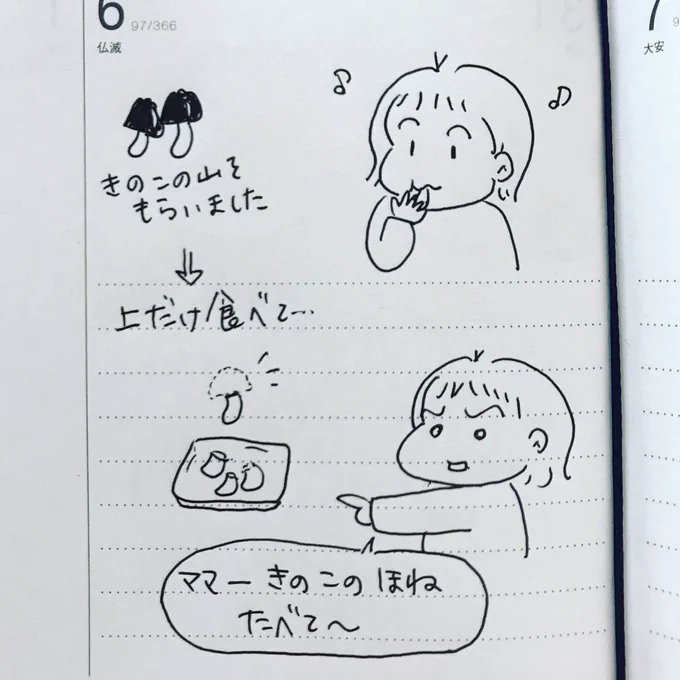 6
97/366
仏滅
きのこの山を
もらいました
上だけ食べて…
ママーきのこのほね
たべて〜
7
大安